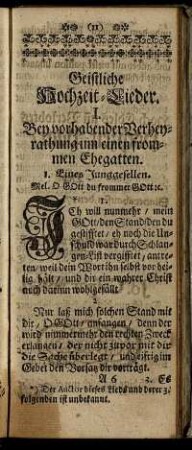 (11)
Geistliche
Hochzeit-Lieder.
I.
Bey vorhabender Verhey-
rathung um einen from-
men Ehegatten.
1. Eines Junggesellen.
Mel. O GOtt du frommer GOtt ꝛc.
1.
Ich will nunmehr, mein
GOtt, den Stand den du
gestifftet, eh noch die Un-
schuld war durch Schlan-
gen-List vergifftet, antre-
ten, weil dein Wort ihn selbst vor hei-
lig hält, und ein wahrer Christ
auch darinn wohlgefällt.
2.
Nur laß mich solchen Stand mit
dir, O GOtt, anfangen, denn der
wird nimmermehr den rechten Zweck
erlangen, der nicht zuvor mit dir
die Sache überlegt, und eifrig im
Gebet den Vorsatz dir vorträgt.
A 6 3. Es
*) Der Auctor dieses Lieds und derer 3.
folgenden ist unbekannt.